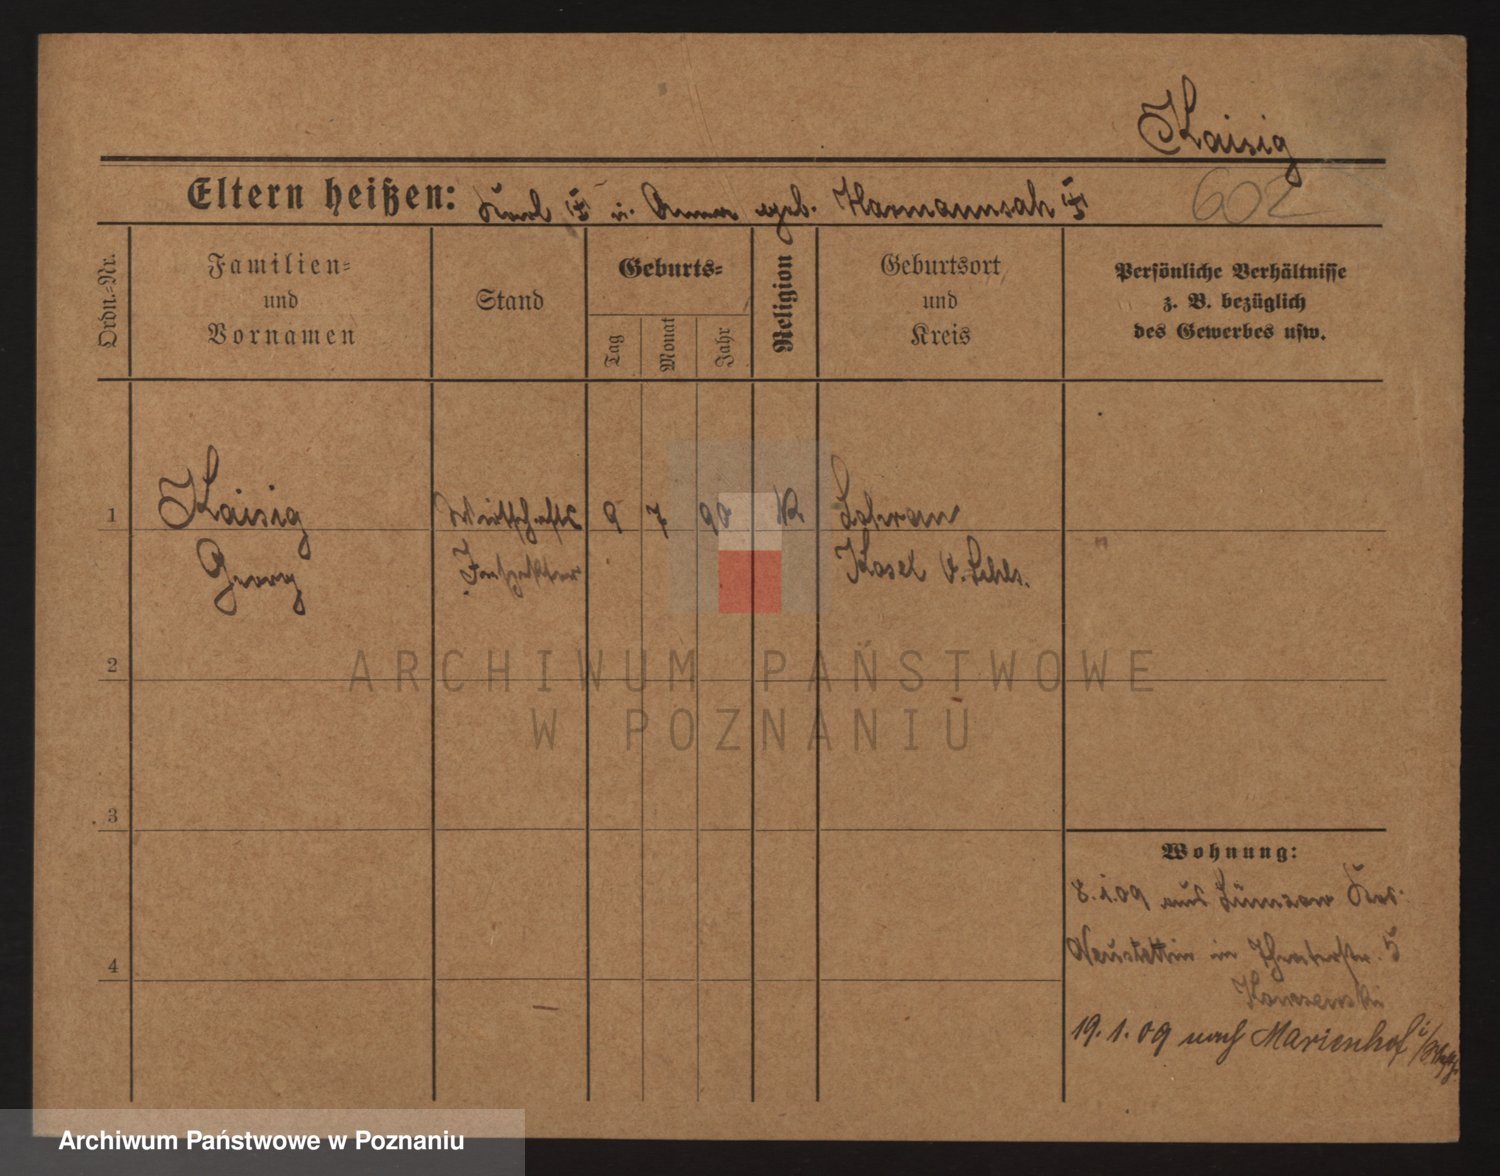 Kaisig
Eltern heißen: Karl u. Anna geb.
602
Ordn.-Nr.
Familien-
und
Vornamen
Stand
Geburts-
Tag
Monat
Jahr
Religion
Geburtsort
und
Kreis
Persönliche Verhältnisse
z. B. bezüglich
des Gewerbes usw.
1
Kaisig
Georg
Wirtschafts
Inspektor
9 7 90 K
Kosel O. Schles.
2
ARCHIWUM PAŃSTWOWE
W POZNANIU
3
4
Wohnung:
8.1.09 aus Lümzow Krs.
Neustettin in Theaterstr. 5
19.1.09 nach Marienhof
Archiwum Państwowe w Poznaniu